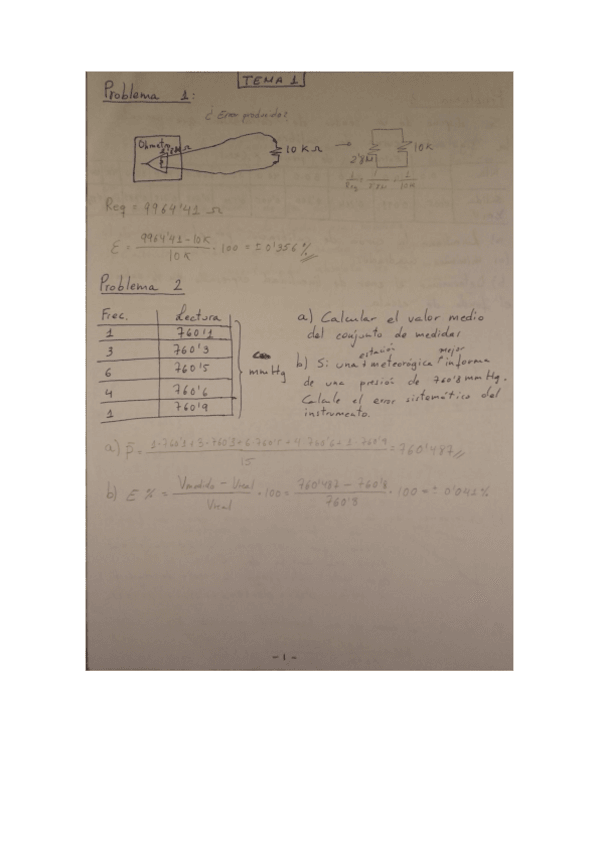 TEMA 1
Problema 1:
¿Error producido?
Ohmetro
10 KΩ
10K
2'8MΩ
Req = 9964'41 Ω
ε = 9964'41 - 10K / 10K · 100 = ± 0'356%
Problema 2
Frec. Lectura
1 760'1
3 760'3
6 760'5
4 760'6
1 760'9
mm Hg
a) Calcular el valor medio
del conjunto de medidas
b) Si una estación meteorógica mejor informa
de una presión de 760'8 mm Hg.
Calcule el error sistemático del
instrumento.
a) P̄ = 1·760'1+3·760'3+6·760'5+4·760'6+1·760'9 / 15 = 760'487
b) E % = Vmedido - Vreal / Vreal · 100 = 760'487 - 760'8 / 760'8 · 100 = - 0'041%
- 1 -